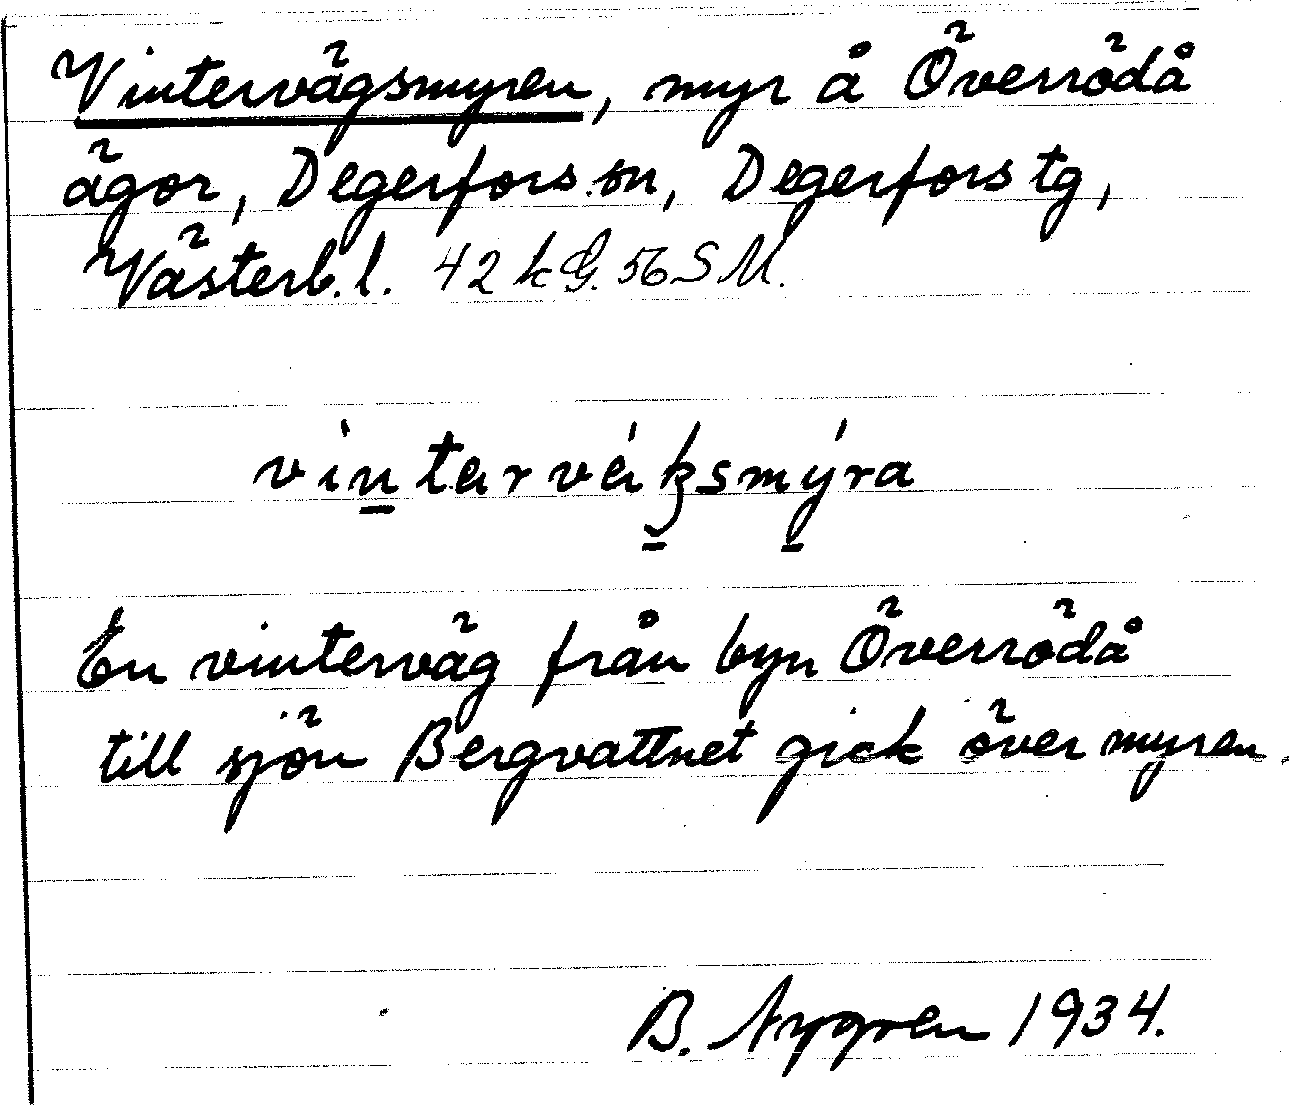 Vintervägsmyren, myr å Överrödå
ägor, Degerfors sn, Degerfors tg,
Västerb. l. 42 k G. 56 S M.
vìntarvéksmýra
En vinterväg från byn Överrödå
till sjön Bergvattnet gick över myren.
B. Nygren 1934.